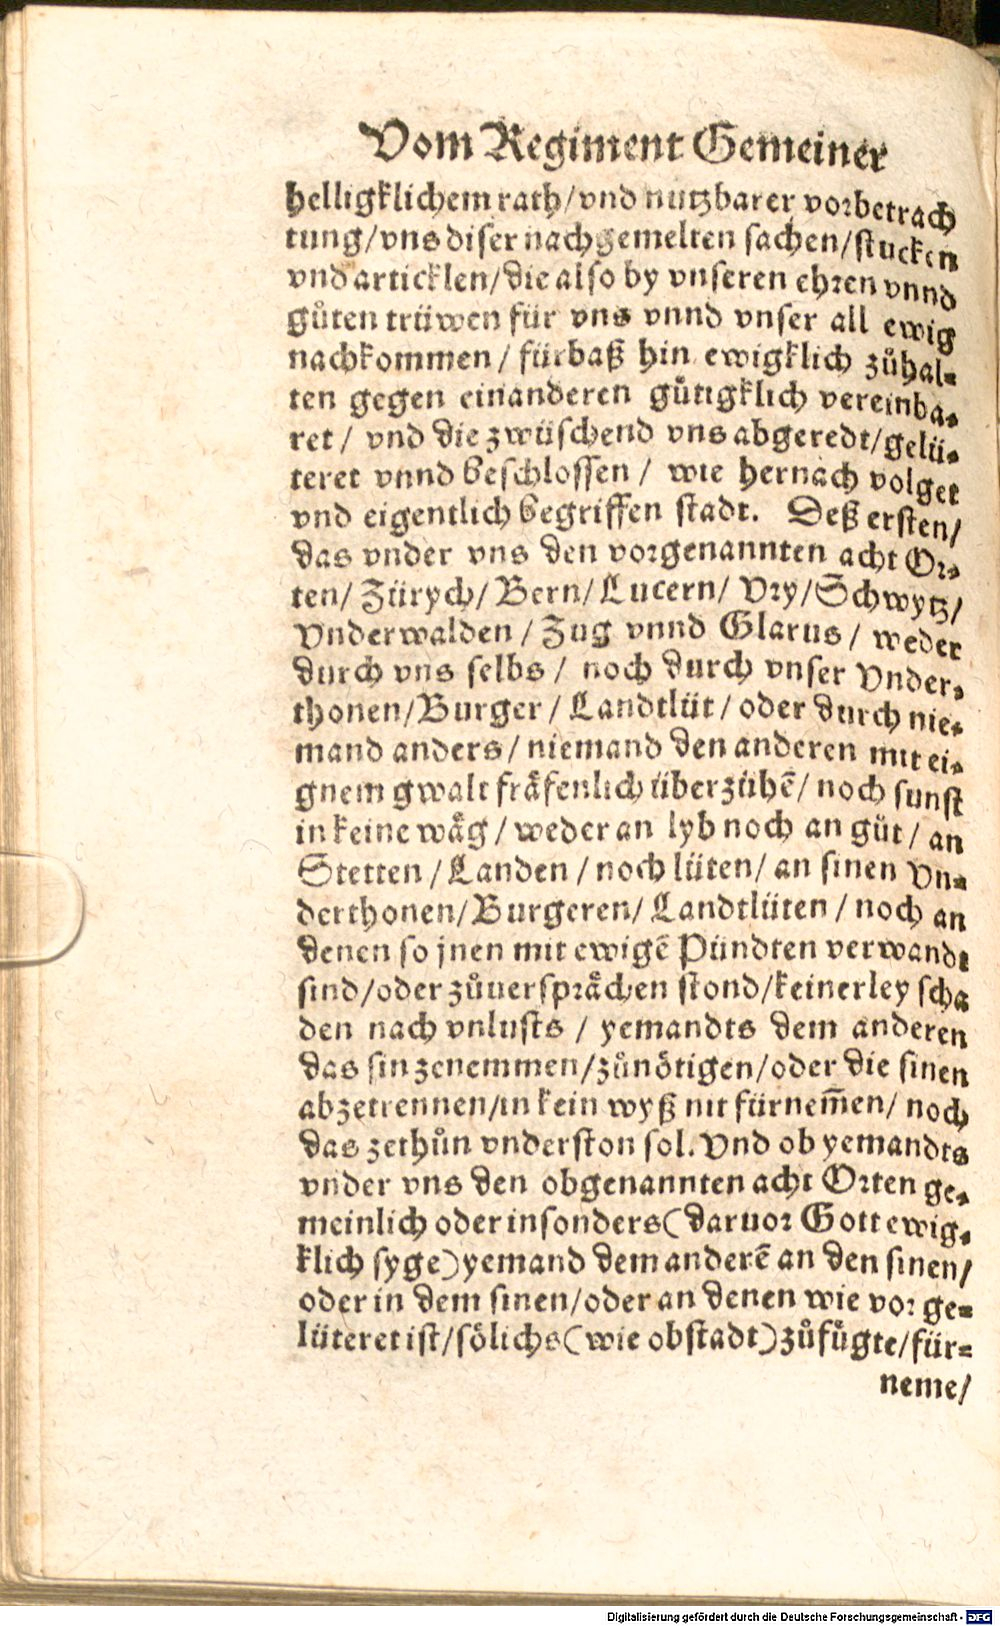 Vom Regiment Gemeiner
helligklichem rath/vnd nutzbarer vorbetrach
tung/vns diser nachgemelten sachen/stucken
vnd articklen/die also by vnseren ehren vnnd
gůten trüwen für vns vnnd vnser all ewig
nachkommen/ fürbaß hin ewigklich zůhal-
ten gegen einanderen gůtigklich vereinba-
ret/ vnd die zwüschend vns abgeredt/gelü-
teret vnnd beschlossen/ wie hernach volget
vnd eigentlich begriffen stadt. Deß ersten/
das vnder vns den vorgenannten acht Or-
ten/ Zürych/ Bern/ Lucern/ Vry/ Schwytz/
Vnderwalden/ Zug vnnd Glarus/ weder
durch vns selbs/ noch durch vnser Vnder-
thonen/ Burger/ Landtlüt/ oder durch nie-
mand anders/ niemand den anderen mit ei-
gnem gwalt fråfenlich überzühē/ noch sunst
in keine wåg/ weder an lyb noch an gůt/ an
Stetten/ Landen/ noch lüten/ an sinen Vn-
derthonen/ Burgeren/ Landtlüten/ noch an
denen so jnen mit ewigē Pündten verwandt
sind/oder zůuerspråchen stond/keinerley scha
den nach vnlusts/ yemandts dem anderen
das sin zenemmen/zůnötigen/oder die sinen
abzetrennen/in kein wyß nit fürnem̄en/ noch
das zethůn vnderston sol. Vnd ob yemandts
vnder vns den obgenannten acht Orten ge-
meinlich oder insonders(daruor Gott ewig-
klich syge)yemand dem anderē an den sinen/
oder in dem sinen/oder an denen wie vor ge-
lüteret ist/sölichs(wie obstadt)zůfůgte/für-
neme/
Digitalisierung gefördert durch die Deutsche Forschungsgemeinschaft - DFG